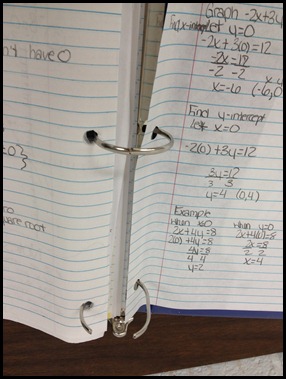 have 0
=0}
ware root
Graph -2x+3y
Find x-intercept let y=0
-2x+3(0)=12
-2x=12
-2 -2
x=-6 (-6,0
Find y-intercept
let x=0
-2(0)+3y=12
3y=12
3 3
y=4 (0,4)
Example
when x=0
2x+4y=8
2(0)+4y=8
4y=8
4 4
y=2
when y=0
2x+4(0)=8
2x=8
2 2
x=4